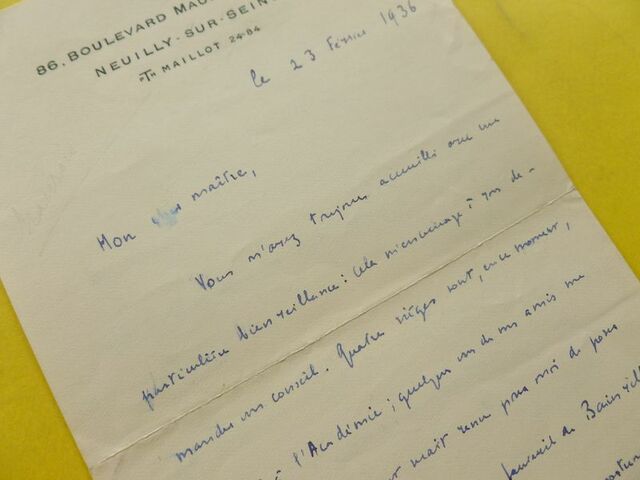 86, BOULEVARD MAU
NEUILLY-SUR-SEIN
TH MAILLOT 24-84
le 23 février 1936
Mon cher maître,
Vous m'avez toujours accueilli avec une
particulière bienveillance : cela m'encourage à vous de-
mander un conseil. Quatre sièges sont, en ce moment,
à l'Académie ; quelques uns de mes amis me
pour moi de poser
fauteuil de Bainvill